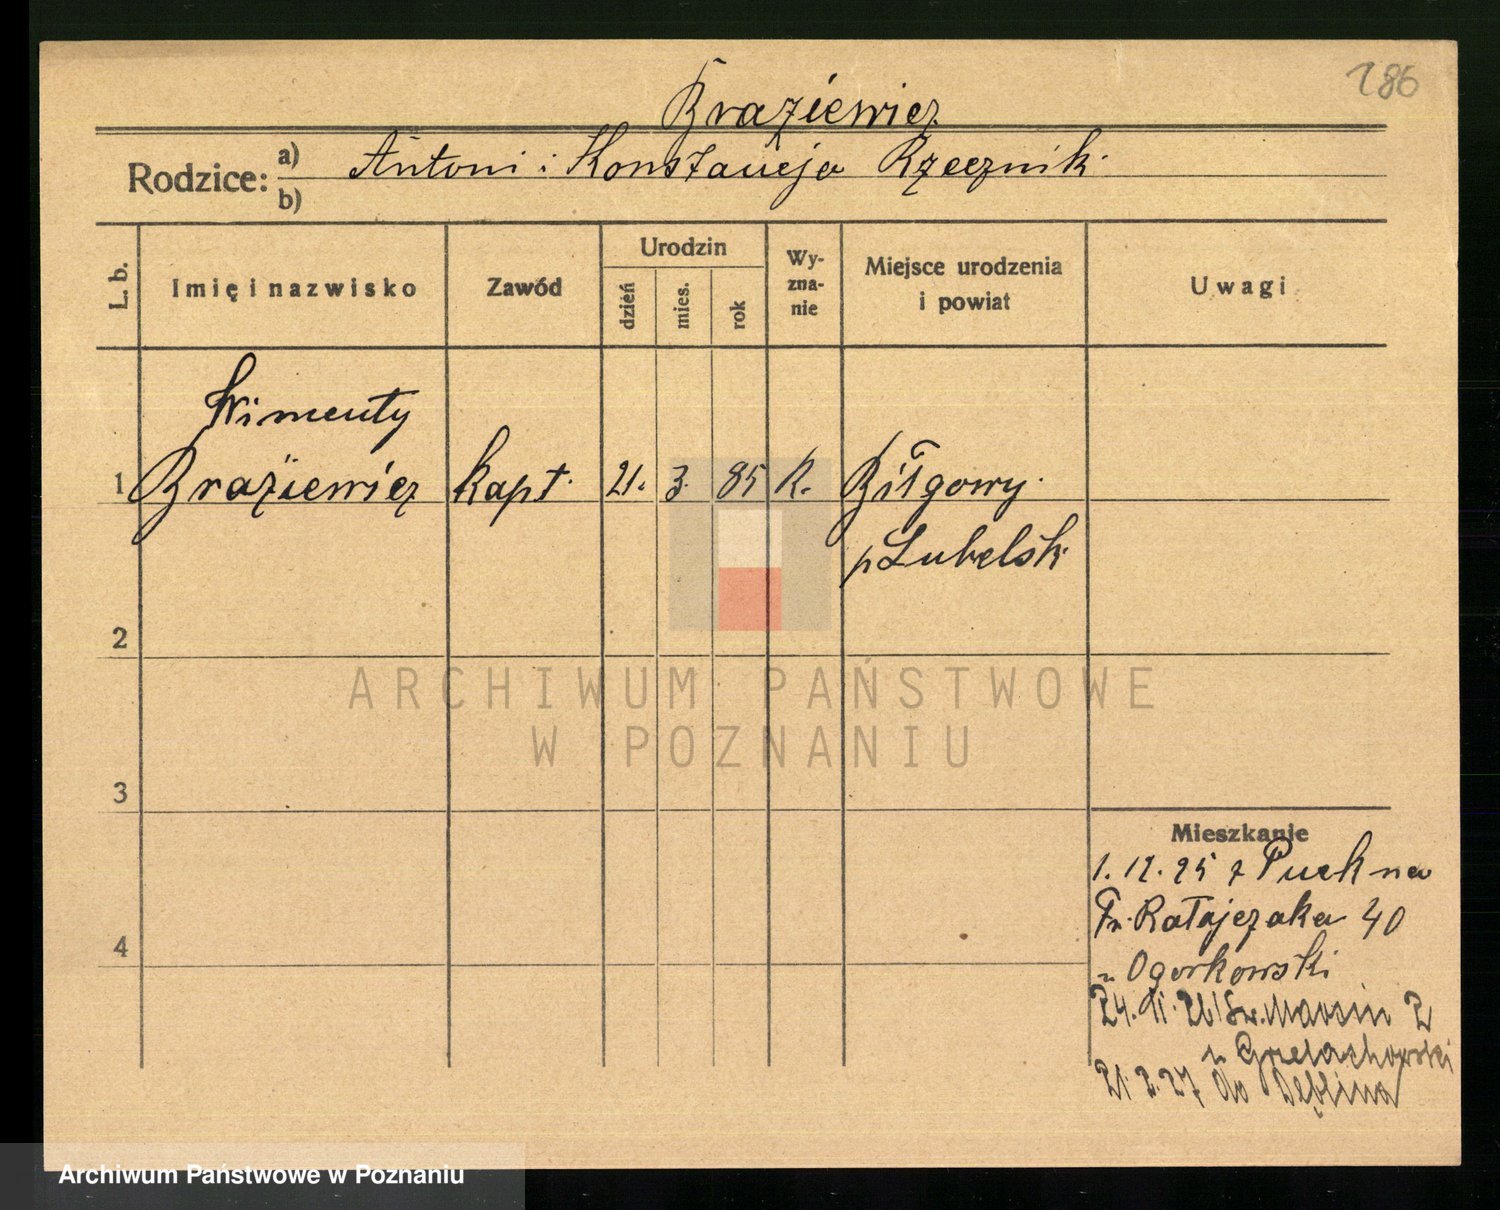 186
Braziewicz
Rodzice: a) Antoni i Konstancja Rzecznik
b)
L. b. Imię i nazwisko Zawód Urodzin dzień mies. rok Wy-zna-nie Miejsce urodzenia i powiat Uwagi
Braziewicz kapt. 21. 3. 85 R. Biłgowy
1
p Lubelsk
2
ARCHIWUM PAŃSTWOWE
W POZNANIU
3
Mieszkanie
1. 12. 25 z Puck na
Fr. Ratajczaka 40
4
u Ogorkowski
24. 11. 26 Św. Marcin 2
u Grelachowski
21. 2. 27 do Dęblina
Archiwum Państwowe w Poznaniu